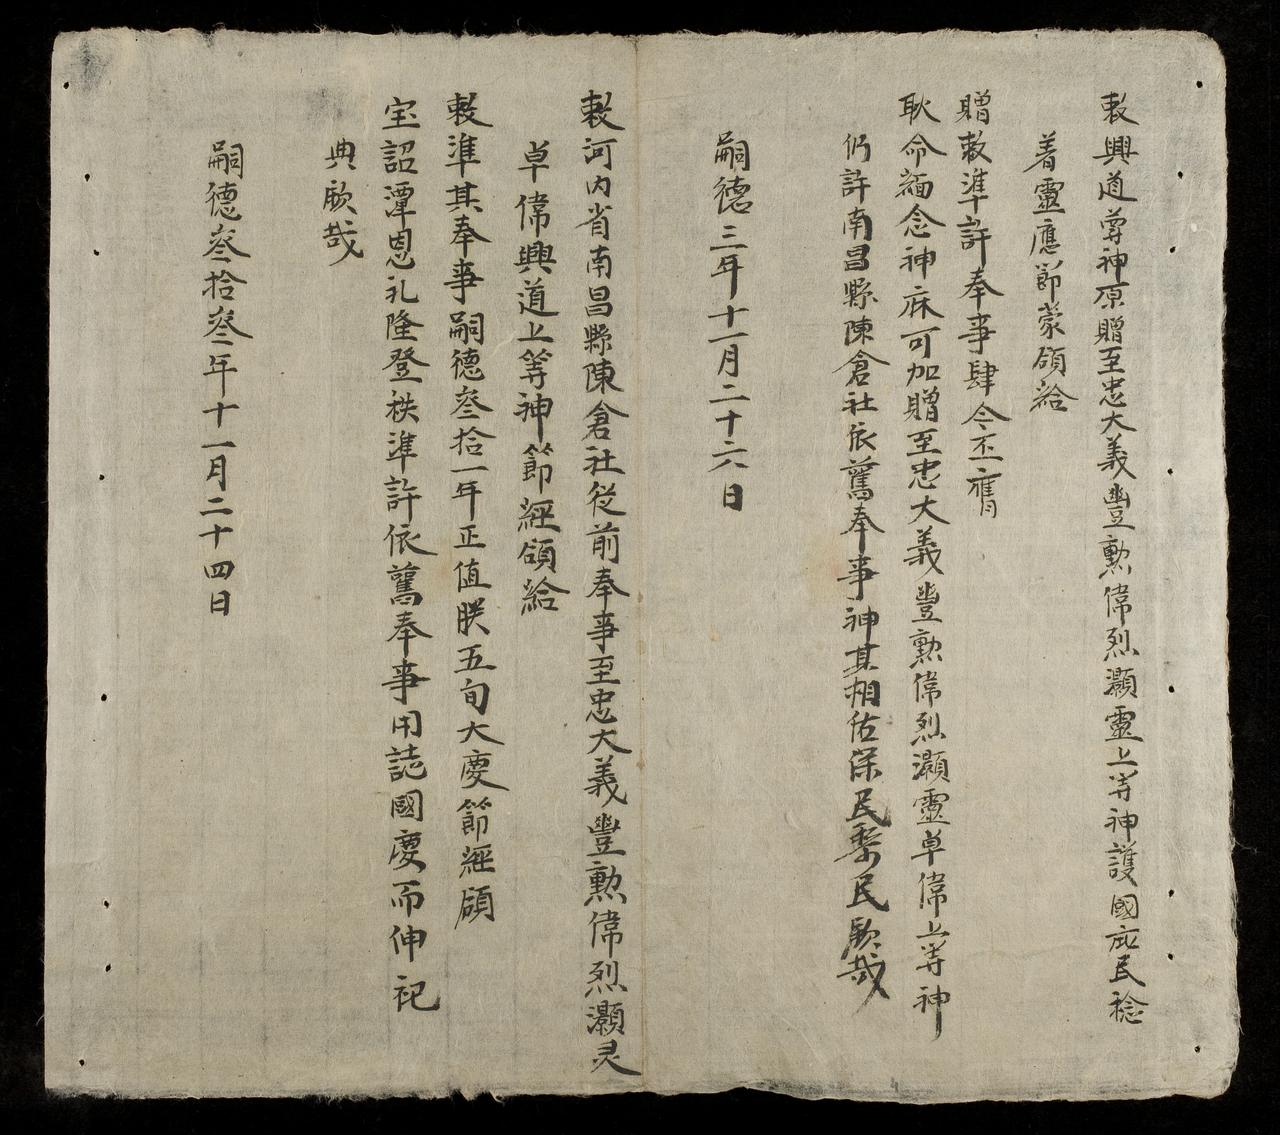 敕興道尊神原贈至忠大義豊勲偉烈灝靈上等神護國庇民稔
着靈應節蒙頒給
贈敕準許奉事肆今丕膺
耿命緬念神庥可加贈至忠大義豊勲偉烈灝靈卓偉上等神
仍許南昌縣陳倉社依舊奉事神其相佑保民黎民欽哉
嗣德三年十一月二十六日
敕河内省南昌縣陳倉社従前奉事至忠大義豊勲偉烈灝灵
卓偉興道上等神節經頒給
敕準其奉事嗣德叄拾一年正值朕五旬大慶節經頒
宝詔潭恩礼隆登秩準許依舊奉事用誌國慶而伸祀
典欽哉
嗣德叄拾叄年十一月二十四日